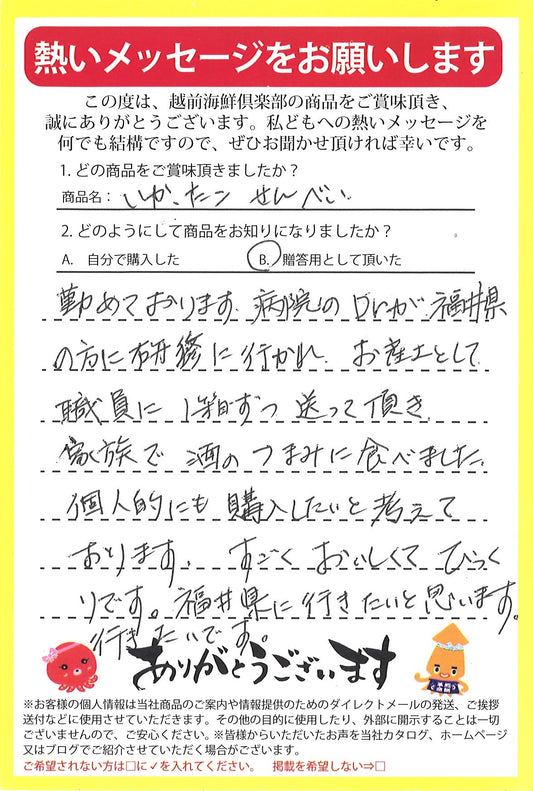 熱いメッセージをお願いします
この度は、越前海鮮倶楽部の商品をご賞味頂き、
誠にありがとうございます。私どもへの熱いメッセージを
何でも結構ですので、ぜひお聞かせ頂ければ幸いです。
1. どの商品をご賞味頂きましたか？
商品名： いか、たこ せんべい
2. どのようにして商品をお知りになりましたか？
A. 自分で購入した B. 贈答用として頂いた
勤めております。病院のDrが福井県
の方に研修に行かれ、お産土として
職員に1箱ずつ送って頂き
家族で酒のつまみに食べました。
個人的にも購入したいと考えて
おります。すごくおいしくてびっく
りです。福井県に行きたいと思います。
行きたいです。
ありがとうございます
※お客様の個人情報は当社商品のご案内や情報提供のためのダイレクトメールの発送、ご挨拶
送付などに使用させていただきます。その他の目的に使用したり、外部に開示することは一切
ございませんので、ご安心ください。※皆様からいただいたお声を当社カタログ、ホームページ
又はブログでご紹介させていただく場合がございます。
ご希望されない方は□に✓を入れてください。 掲載を希望しない⇒□